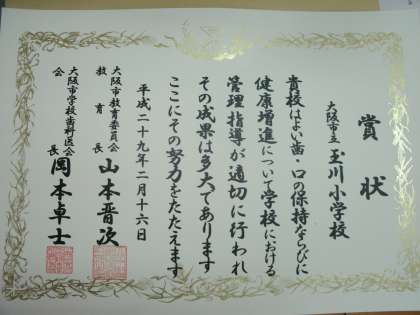 賞状
大阪市立 玉川小学校
貴校はよい歯・口の保持ならびに
健康増進について学校における
管理指導が適切に行われ
その成果は多大であります
ここにその努力をたたえます
平成二十九年二月十六日
大阪市教育委員会
教育長 山本晋次
大阪市学校歯科医会
会長 岡本卓士